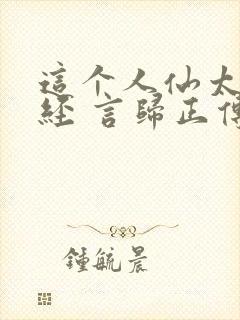 這个人仙太
經 言歸正傳
鍾毓晨